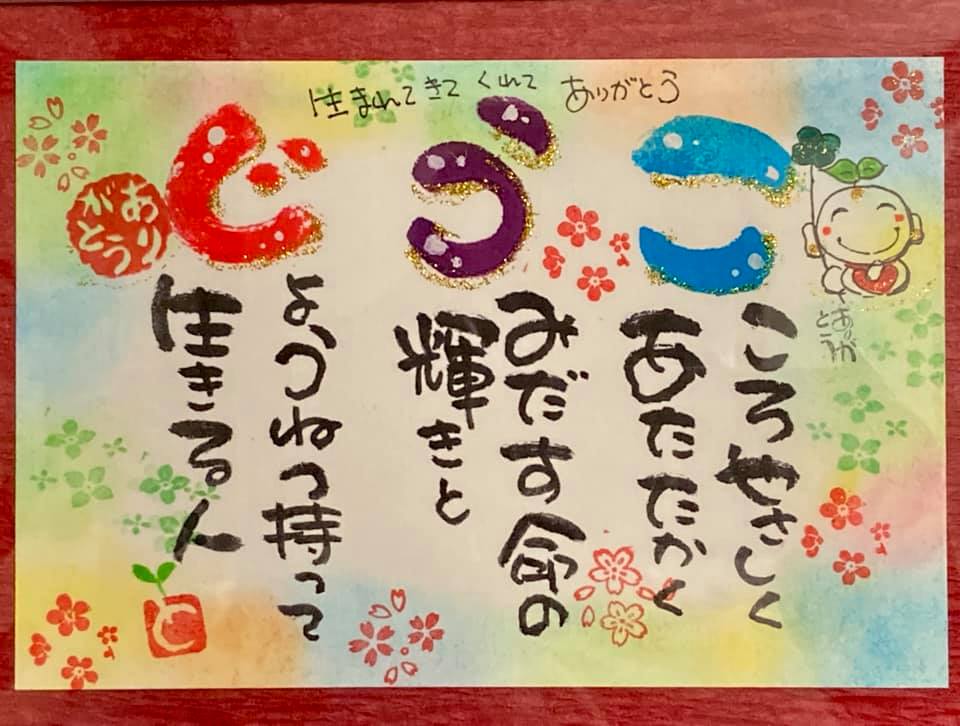 生まれてきて くれて ありがとう
こ
ころやさしく
あたたかく
う
みだす命の
輝きと
じ
ょうねつ持って
生きる人
ありがとう
ありがとう